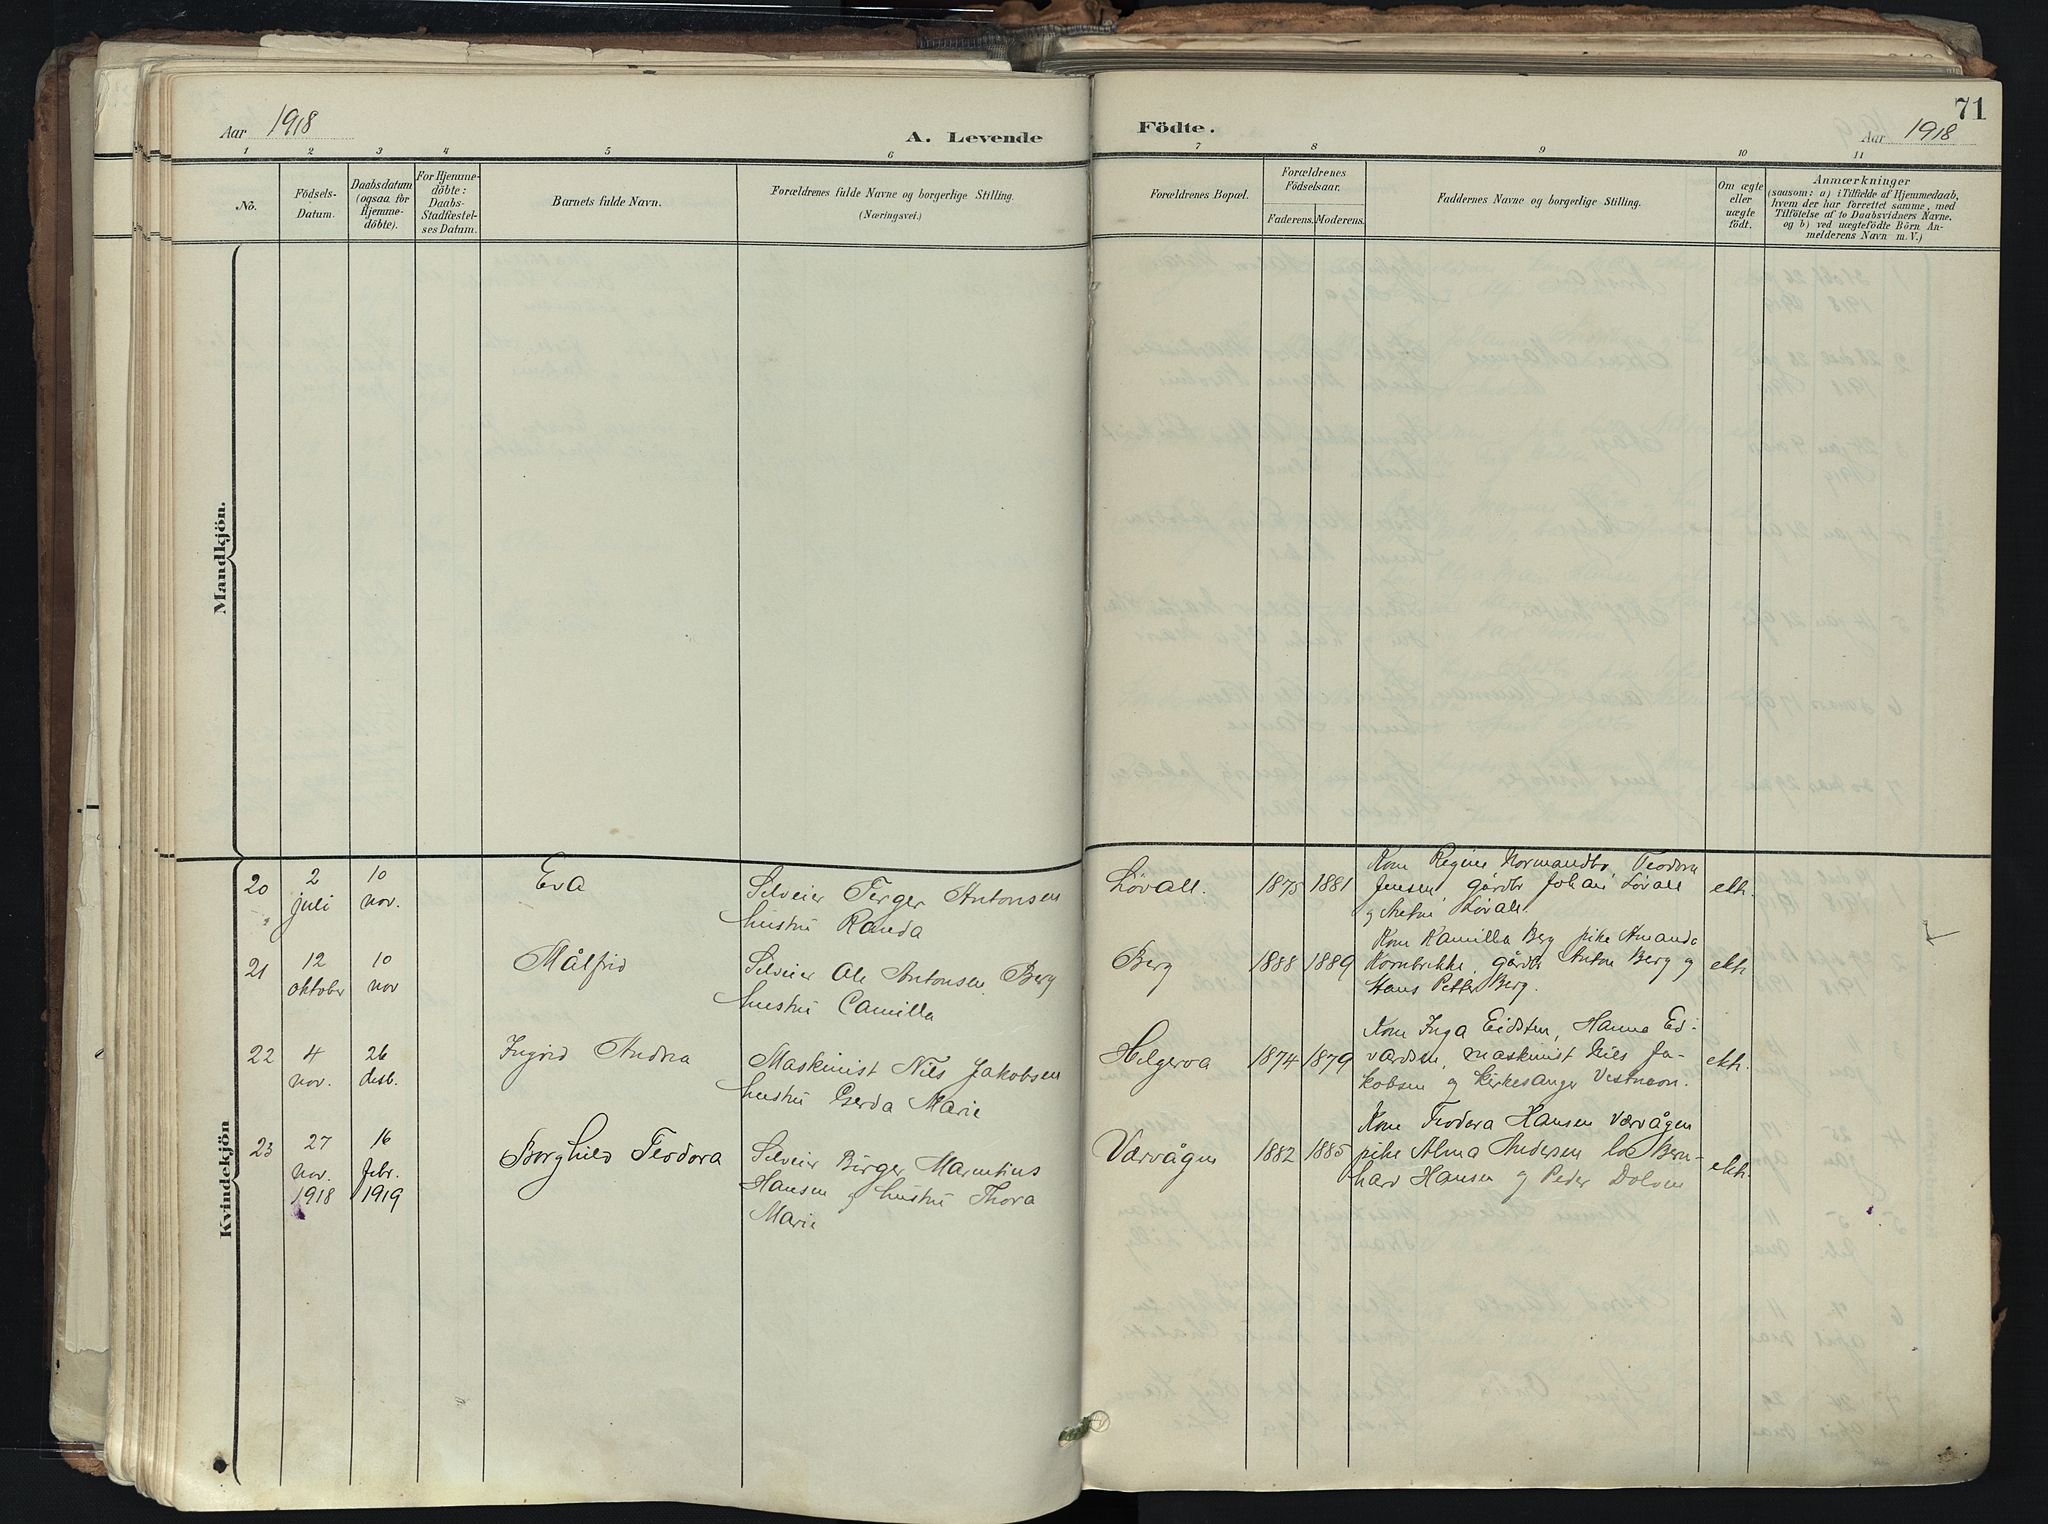 Aar 1918
A. Levende
1 2 3 4 5 6
No.
Födsels-
Datum.
Daabsdatum
(ogsaa for
Hjemme-
döbte).
For Hjemme-
döbte:
Daabs-
Stadfæstel-
ses Datum.
Barnets fulde Navn.
Forældrenes fulde Navne og borgerlige Stilling.
(Næringsvei.)
Mandkjön.
Kvindekjön
20 2 juli 10 nov. Eva
Selveier Terger Antonsen
hustru Randa
21 12 oktober 10 nov Målfrid
Selveier Ole Antonsen Berg
hustru Camilla
22 4 nov. 26 desb. Ingrid Andrea
Maskinist Nils Jakobsen
hustru Gerda Marie
23 27 nov. 1918 16 febr. 1919 Borghild Teodora
Selveier Birger Marntius
Hansen og hustru Thora
Marie
71
Födte.
Aar 1918
7 8 9 10 11
Forældrenes Bopæl.
Forældrenes
Födselsaar.
Faderens. Moderens.
Faddernes Navne og borgerlige Stilling.
Om ægte
eller
uægte
födt.
Anmærkninger
(saasom: a) i Tilfælde af Hjemmedaab,
hvem der har forrettet samme, med
Tilföielse af to Daabsvidners Navne.
og b) ved uægtefödte Börn An-
melderens Navn m. V.)
Løvall. 1875 1881 Kone Regine Normandbo, Teodora
Jensen, gårdbr Johan Løvall
og Løvall. ekte.
Berg 1888 1889 Kone Kamilla Berg pike Amanda
Kornbrekke, gårdbr Anton Berg og
Hans Petter Berg. ekte
Helgeroa 1874 1879 Kone Inga Eidsten, Hanna Ed-
vardsen, maskinist Nils Ja-
kobsen og kirkesanger Vestnæon. ekte.
Værvågen 1882 1885 Kone Teodora Hansen Værvågen
pike Alma Andersen los Bern-
hard Hansen og Peder Dolven ekte.